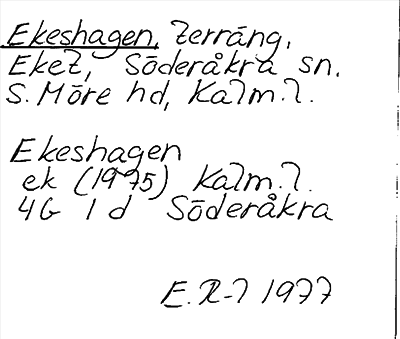 Ekeshagen, terräng.
Eket, Söderåkra sn.
S. Möre hd, Kalm. l.
Ekeshagen
ek (1975) Kalm. l.
4G 1 d Söderåkra
E. R-l 1977